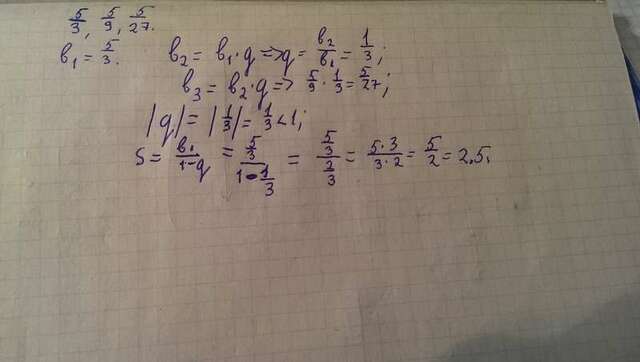 5/3, 5/9, 5/27.
b₁ = 5/3. b₂ = b₁·q => q = b₂/b₁ = 1/3;
b₃ = b₂·q => 5/9 · 1/3 = 5/27;
|q| = |1/3| = 1/3 < 1;
S = b₁/(1-q) = (5/3)/(1-1/3) = (5/3)/(2/3) = (5·3)/(3·2) = 5/2 = 2,5.